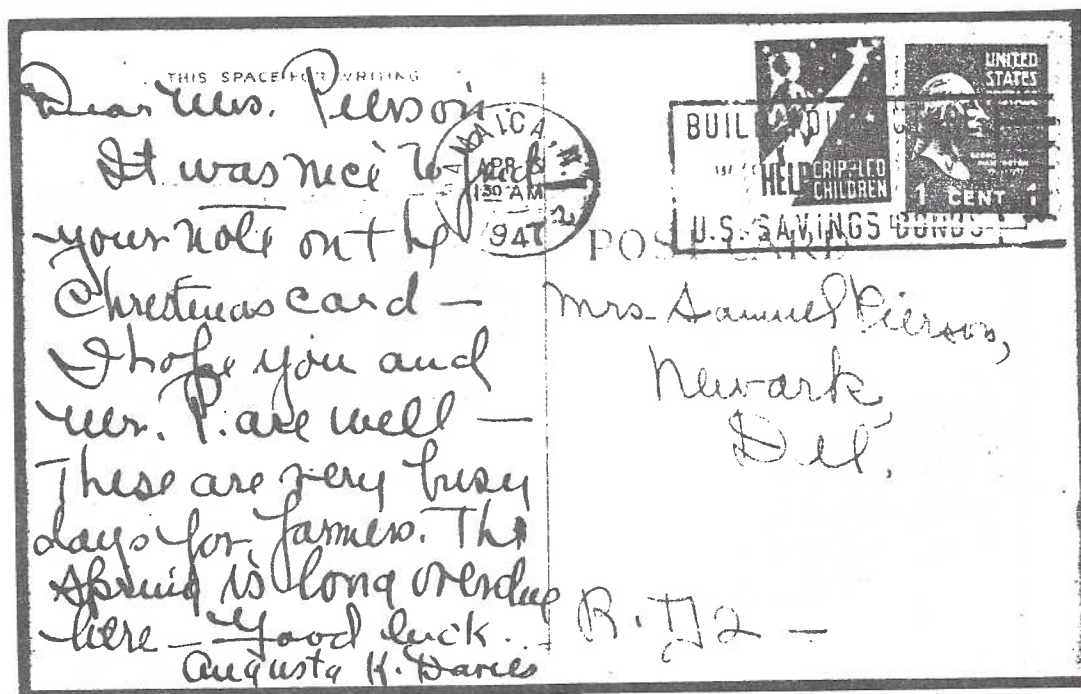 THIS SPACE FOR WRITING
Dear Mrs. Pierson
It was nice to get
your note on the
Christmas card —
I hope you and
Mr. P. are well —
These are very busy
days for farmers. The
Spring is long overdue
here — Good luck.
Augusta K. Davies
JAMAICA, N.Y.
APR
1 30 AM
1947
2
BUILD
WITH
U.S. SAVINGS BONDS
HELP CRIPPLED
CHILDREN
UNITED
STATES
POSTAGE
1 CENT 1
POST CARD
Mrs. Samuel Pierson,
Newark,
Del.
R.D 2 —